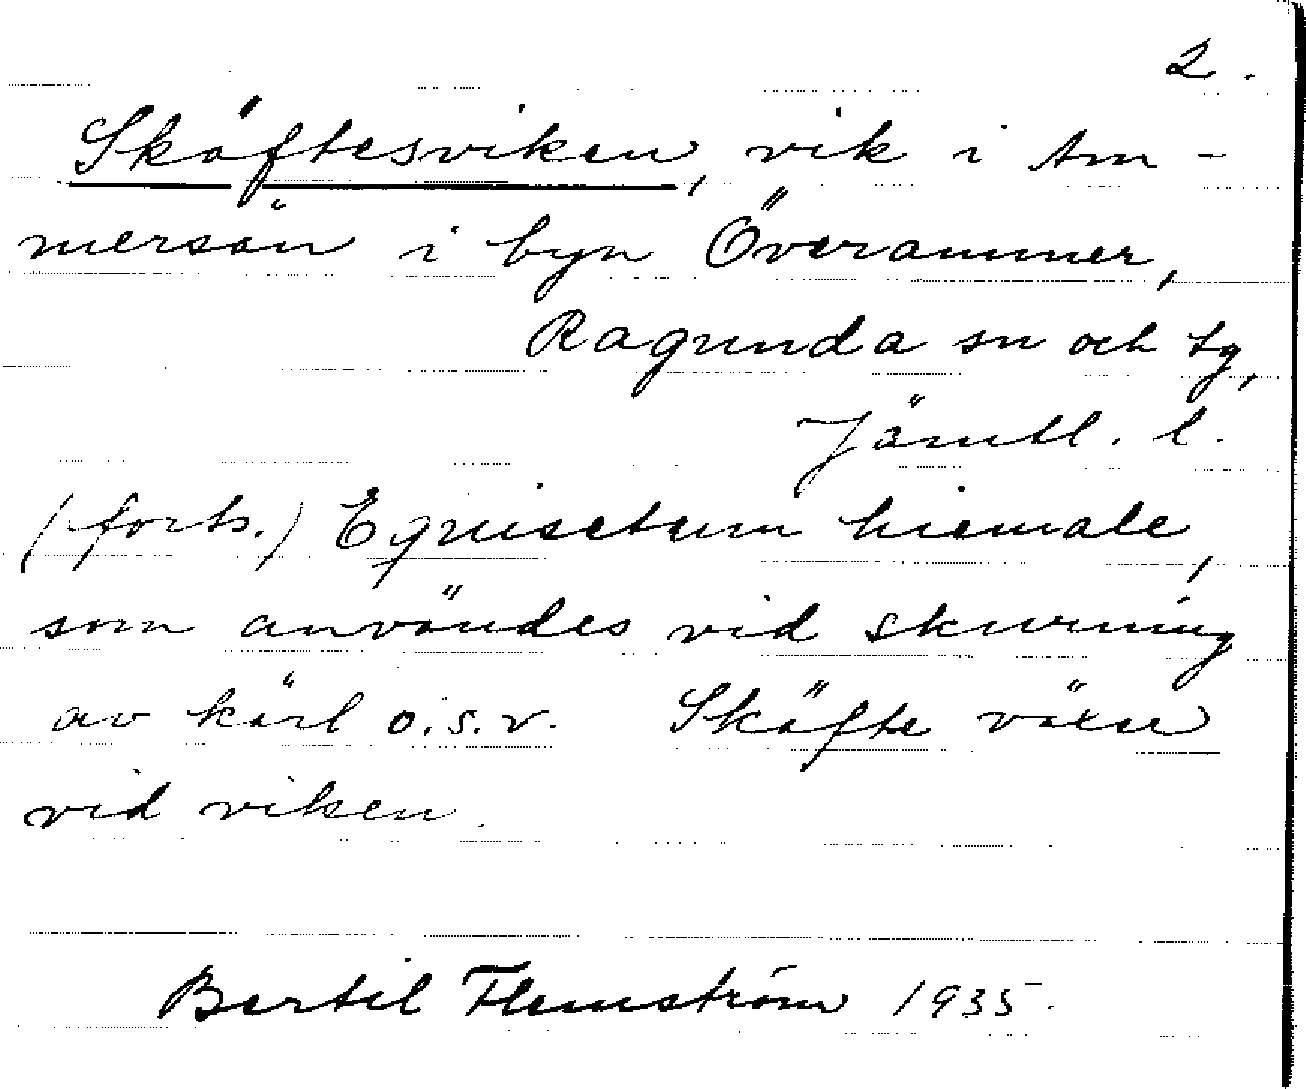 2.
Skäftesviken, vik i Am-
mersön i byn Överammer,
Ragunda sn och tg,
Jämtl. l.
(forts.) Equisetum hiemale,
som användes vid skurning
av kärl o.s.v. Skäfte växer
vid viken.
Bertil Flemström 1935.